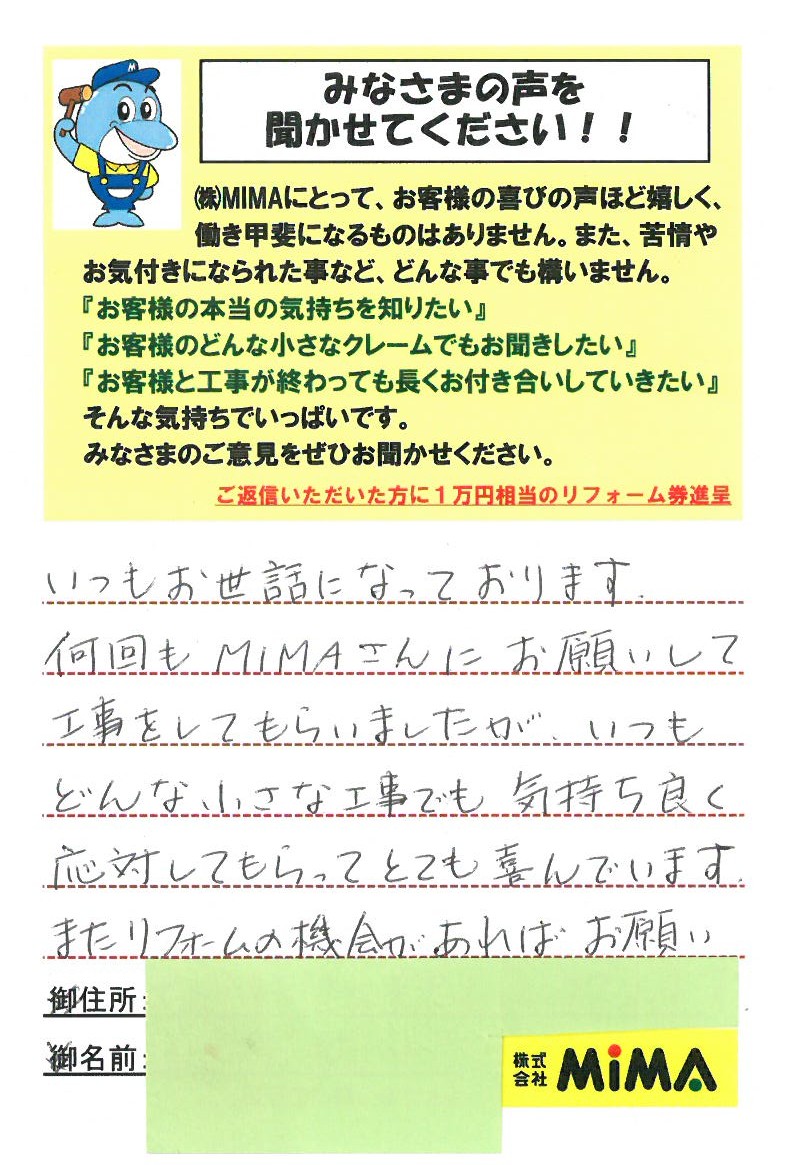 みなさまの声を
聞かせてください！！
㈱MIMAにとって、お客様の喜びの声ほど嬉しく、
働き甲斐になるものはありません。また、苦情や
お気付きになられた事など、どんな事でも構いません。
『お客様の本当の気持ちを知りたい』
『お客様のどんな小さなクレームでもお聞きしたい』
『お客様と工事が終わっても長くお付き合いしていきたい』
そんな気持ちでいっぱいです。
みなさまのご意見をぜひお聞かせください。
ご返信いただいた方に１万円相当のリフォーム券進呈
いつもお世話になっております.
何回も MiMAさんに お願いして
工事をしてもらいましたが、いつも
どんな小さな工事でも 気持ち良く
応対してもらってとても喜んでいます.
またリフォームの機会があれば お願い
御住所:
御名前:
株式会社 MiMA